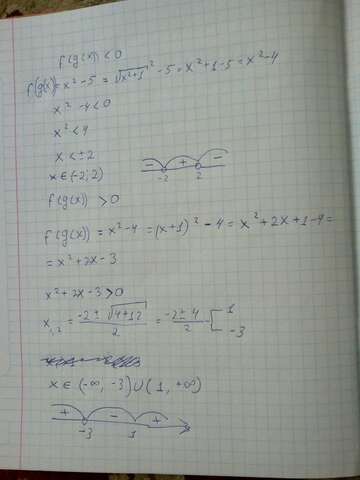 f(g(x)) < 0
f(g(x)) = x² - 5 = √(x²+1)² - 5 = x² + 1 - 5 = x² - 4
x² - 4 < 0
x² < 4
x < ± 2
x ∈ (-2; 2)
- + -
-2 2
f(g(x)) > 0
f(g(x)) = x² - 4 = (x+1)² - 4 = x² + 2x + 1 - 4 =
= x² + 2x - 3
x² + 2x - 3 > 0
x₁,₂ = (-2 ± √(4+12))/2 = (-2 ± 4)/2 [ 1
-3
x ∈ (-∞, -3) ∪ (1, +∞)
+ - +
-3 1